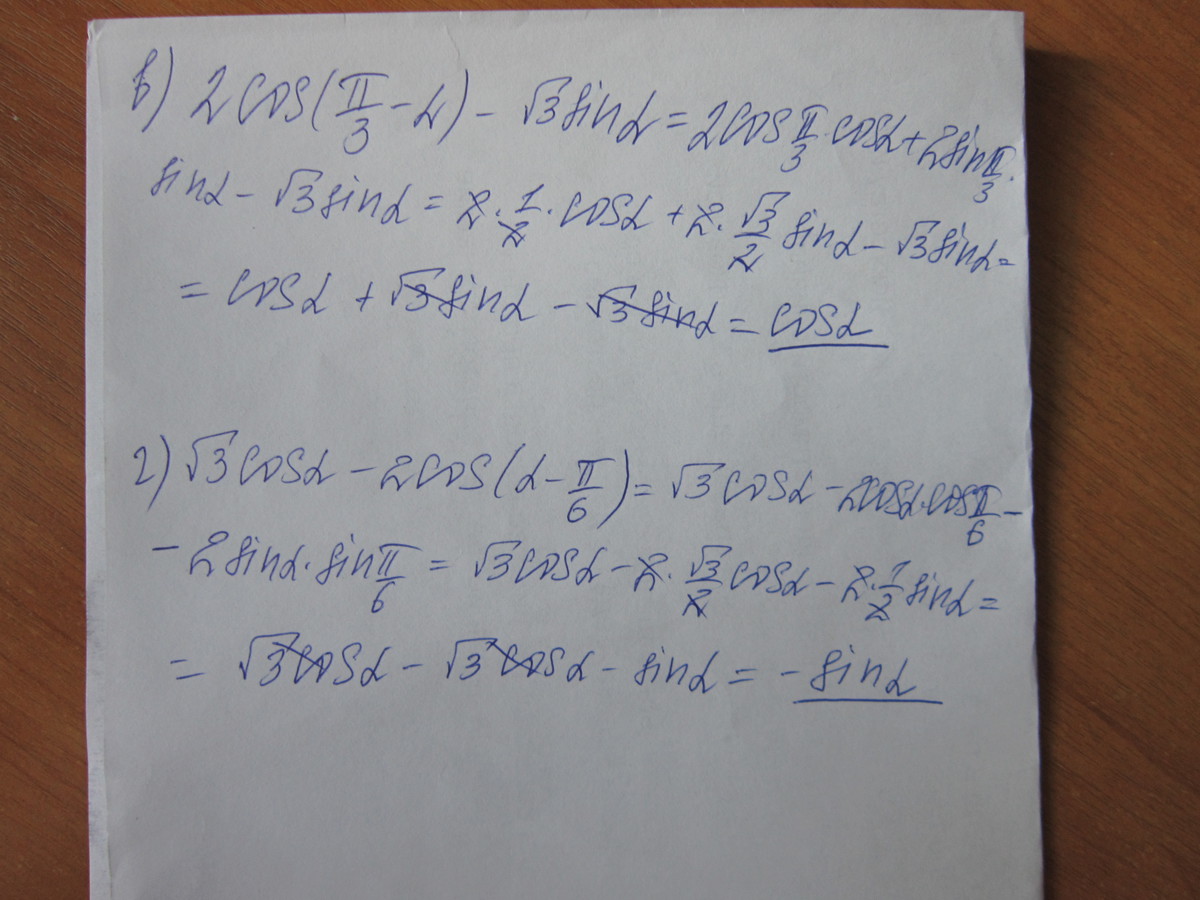 в) 2cos(π/3 - α) - √3 sinα = 2cos π/3 · cosα + 2sin π/3 ·
sinα - √3 sinα = 2 · 1/2 · cosα + 2 · √3/2 sinα - √3 sinα =
= cosα + √3 sinα - √3 sinα = cosα
г) √3 cosα - 2cos(α - π/6) = √3 cosα - 2cosα · cos π/6 -
- 2sinα · sin π/6 = √3 cosα - 2 · √3/2 cosα - 2 · 1/2 sinα =
= √3 cosα - √3 cosα - sinα = - sinα